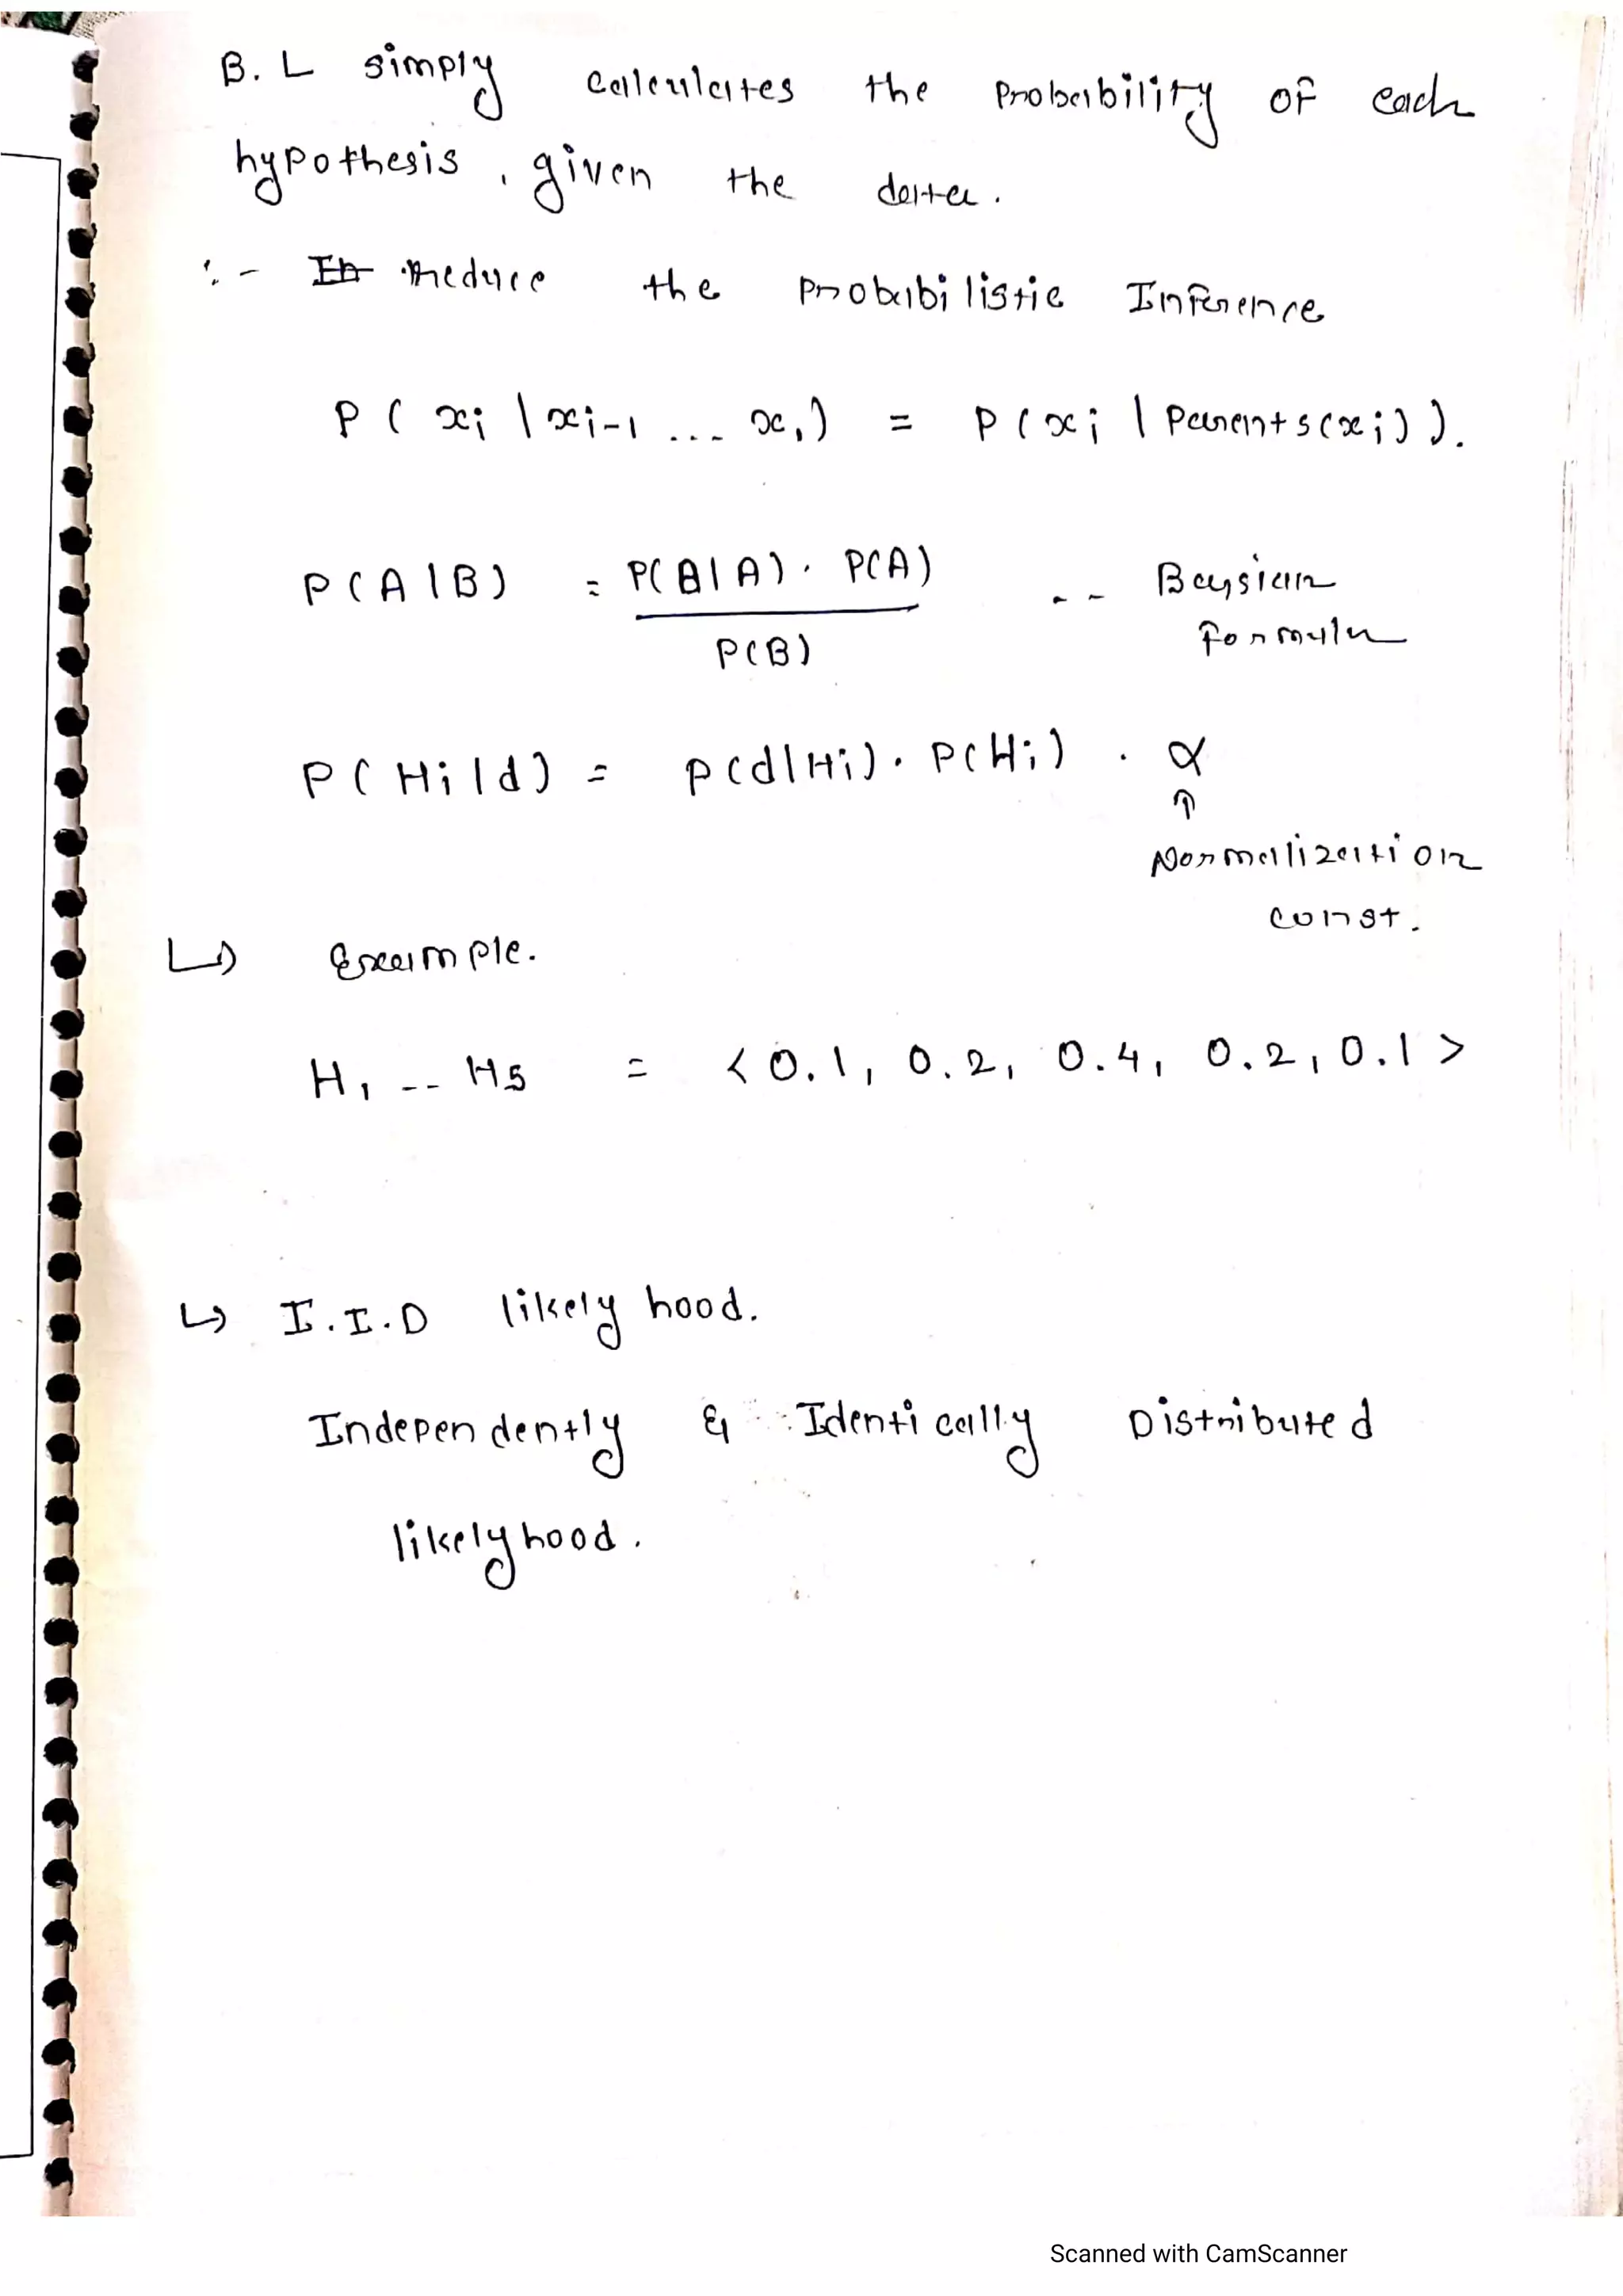 B. L simply calculates the probability of each
hypothesis, given the data.
:- reduce the probabilistic Inference
P ( xi | xi-1 ... x1) = P ( xi | Parents(xi)).
P(A|B) = P(B|A) . P(A) / P(B) -- Baysian
formula
P( Hi|d) = P(d|Hi). P(Hi) . α
↑
Normalization
const.
↳ Example.
H1 -- H5 = < 0.1, 0.2, 0.4, 0.2, 0.1 >
↳ I.I.D likely hood.
Independently & Identically Distributed
likelyhood.
Scanned with CamScanner